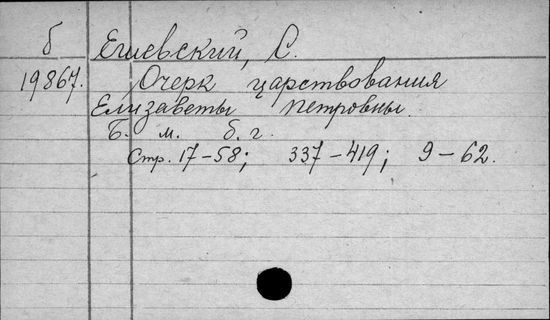 б Ешевский, С.
19867. Очерк царствования
Елизаветы Петровны.
Б. м. б. г.
Стр. 17-58; 337-419; 9-62.